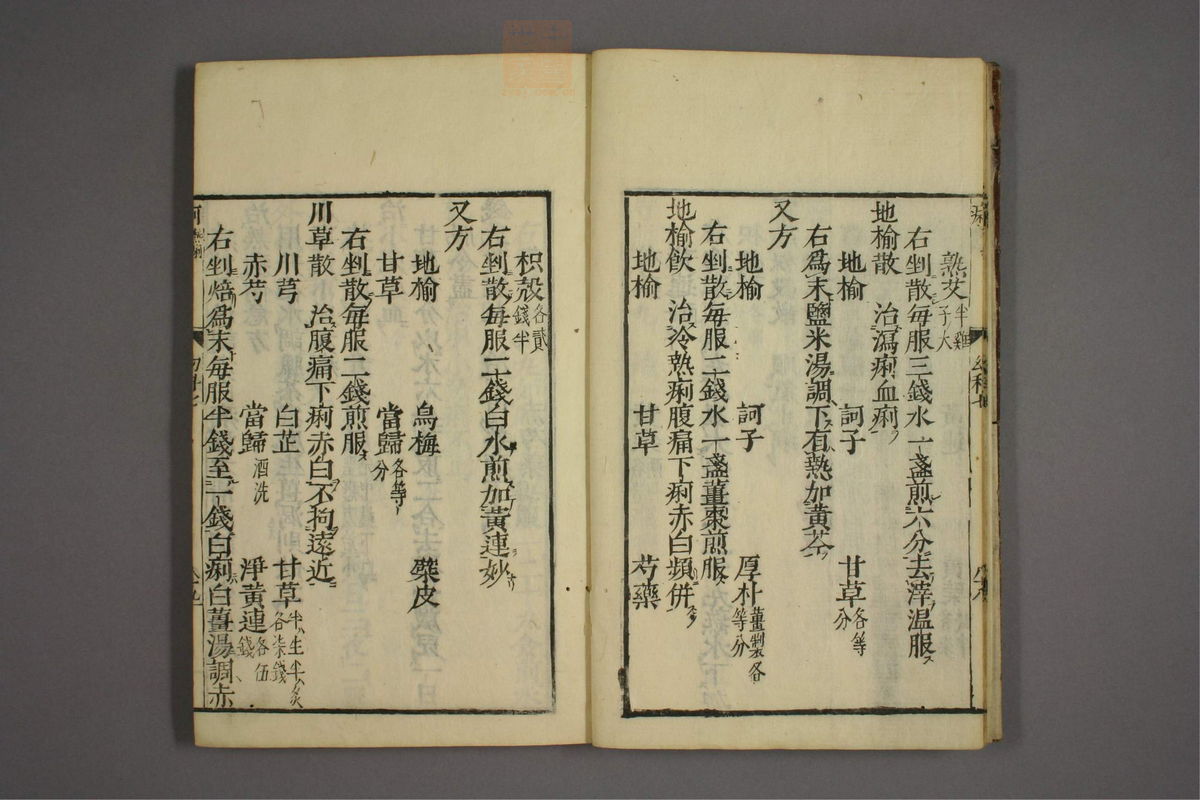 熟艾半雞子大
右剉散每服三錢水一盞煎六分去滓温服ス
地榆散　治瀉痢血痢ヲ
地榆　訶子　甘草各等分
右爲末鹽米湯調下有熱加黃芩ヲ
又方
地榆　訶子　厚朴薑製各等分
右剉散每服二錢水一盞薑棗煎服ス
地榆飲　治冷熱痢腹痛下痢赤白頻併
地榆　甘草　芍藥
枳殼各貳錢半
右剉散每服二錢白水煎加黃連妙
又方
地榆　烏梅　蘗皮
甘草　當歸各等分
右剉散每服二錢煎服ス
川草散　治腹痛下痢赤白不拘遠近
川芎　白芷　甘草半生半炙各柒錢
赤芍　當歸酒洗　淨黃連各伍錢
右剉焙爲末每服半錢至一錢白痢白薑湯調赤